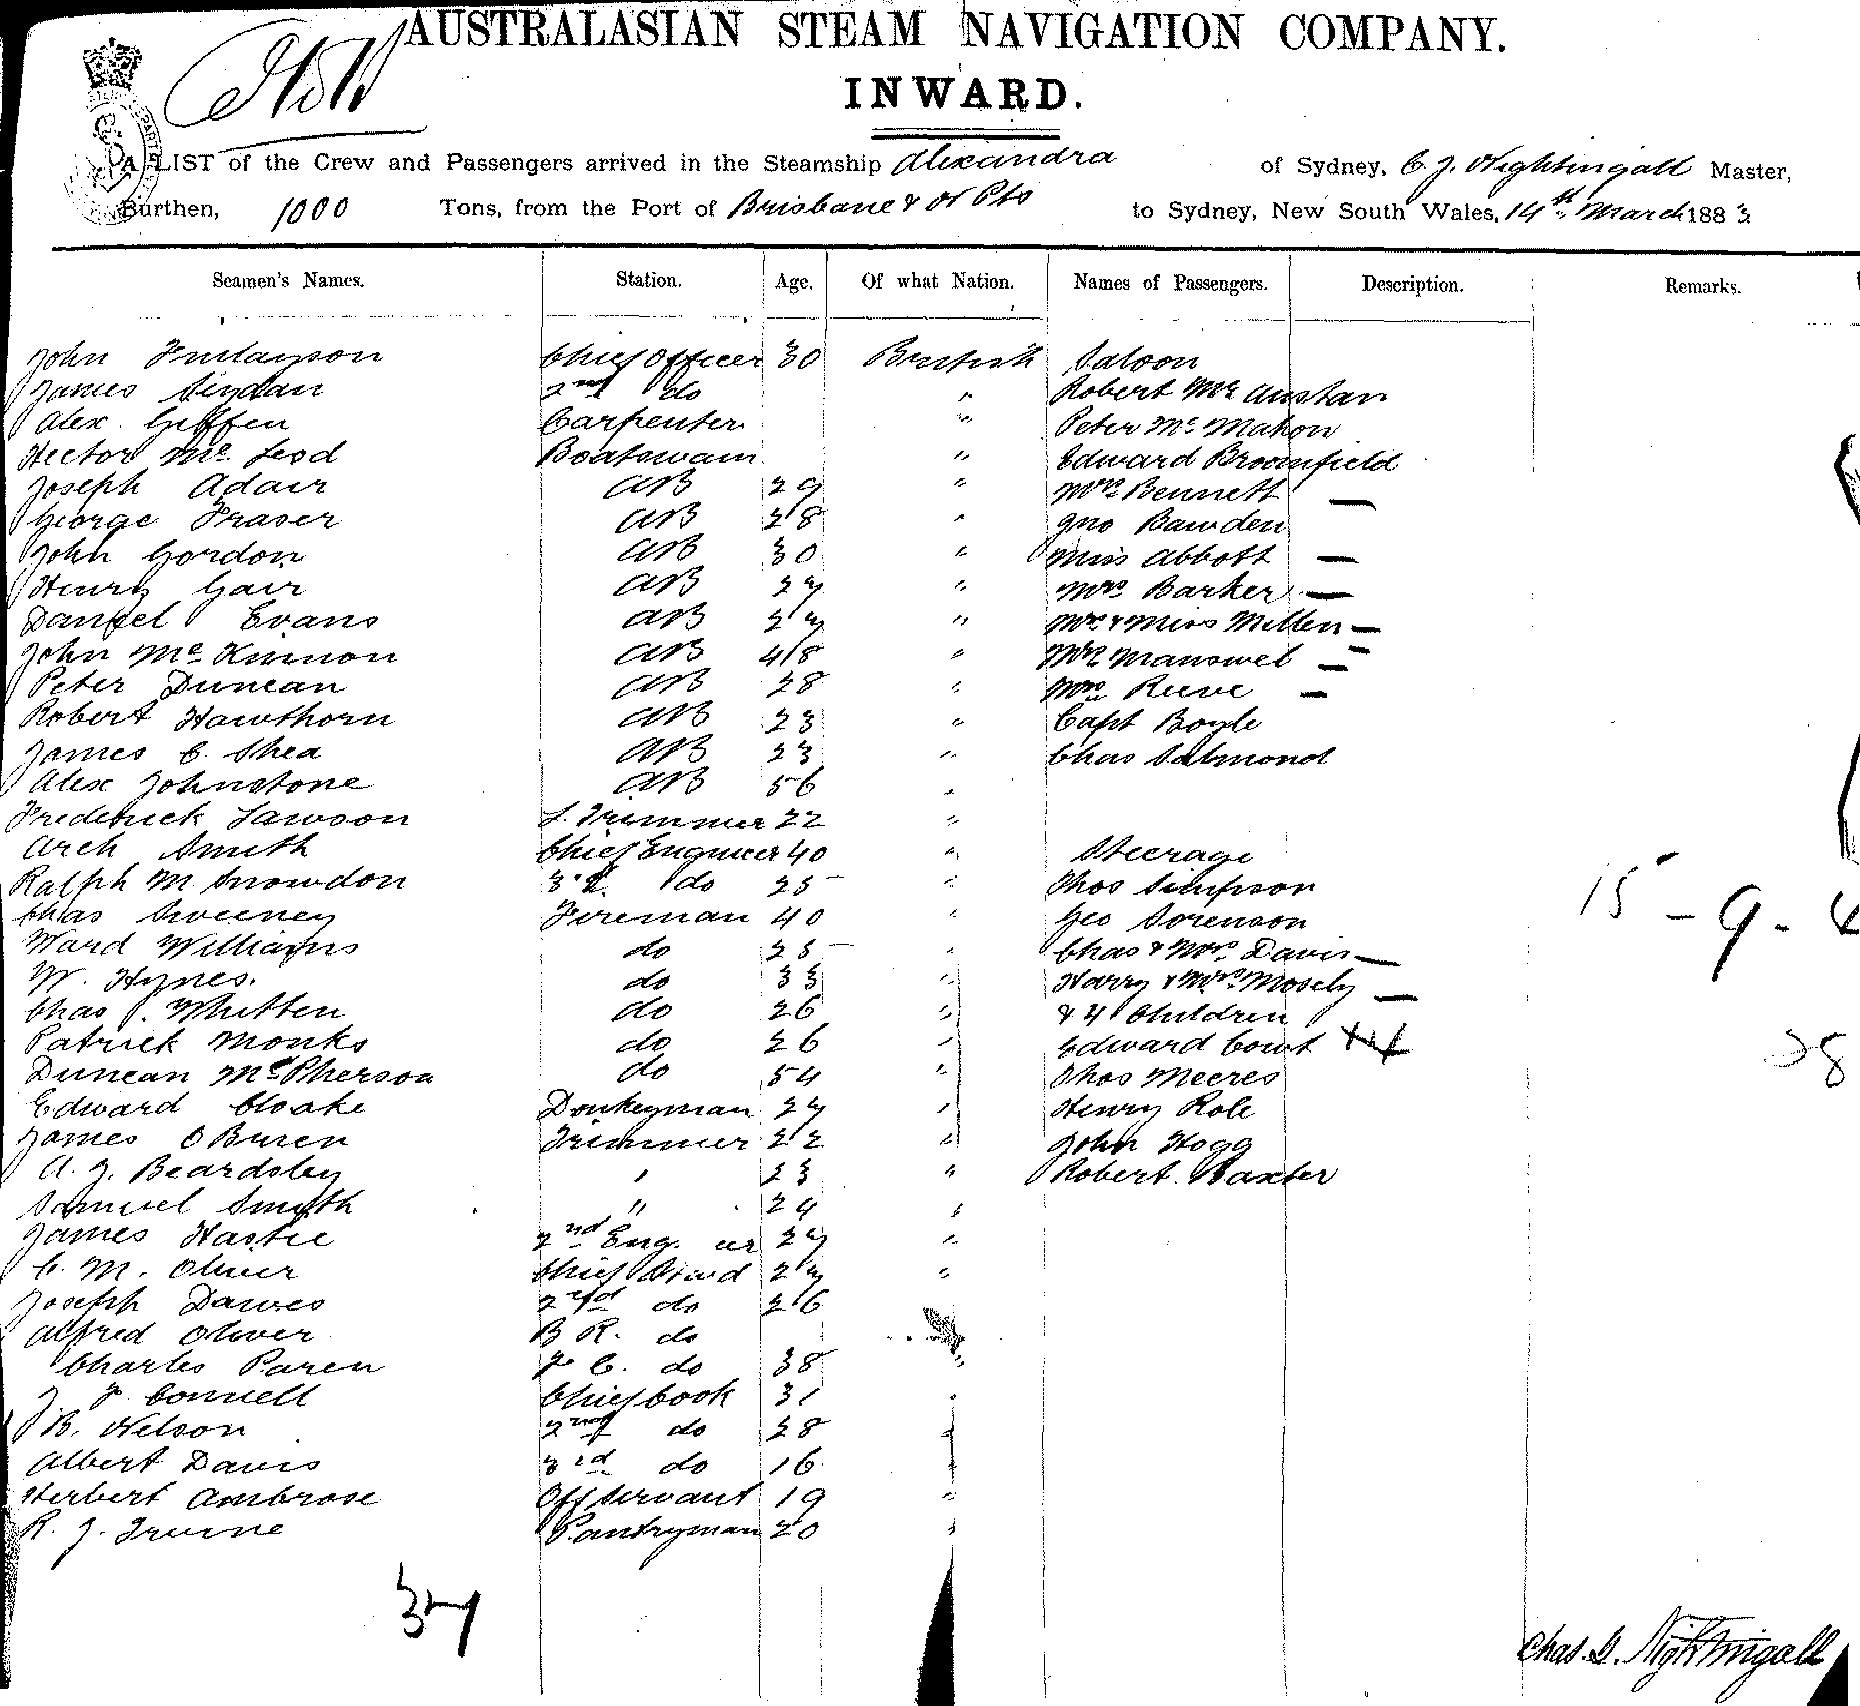 AUSTRALASIAN STEAM NAVIGATION COMPANY.
INWARD.
A LIST of the Crew and Passengers arrived in the Steamship Alexandra of Sydney, C. J. Nightingall Master,
Burthen, 1000 Tons, from the Port of Brisbane & N Pts to Sydney, New South Wales, 14th March 1883
Seamen's Names. Station. Age. Of what Nation. Names of Passengers. Description. Remarks.
John Finlayson Chief Officer 30 British Saloon
James 2nd do " Robert Mc Austan
Alex. Giffen Carpenter " Peter Mc Mahon
Hector Mc Leod Boatswain " Edward Broomfield
Joseph Adair AB 29 " Mrs Bennett —
George Fraser AB 28 " Jno Bawden
John Gordon AB 30 " Miss Abbott —
Henry Gair AB 27 " Mrs Barker —
Daniel Evans AB 27 " Mrs & Miss Millen —
John Mc Kinnon AB 48 " Manswel —
Peter Duncan AB 28 " Mrs Reeve —
Robert Hawthorn AB 23 " Capt Boyle
James C. Shea AB 23 " Chas Salmond
Alex Johnstone AB 56 "
Frederick Lawson L. Trimmer 22 "
Arch Smith Chief Engineer 40 " Steerage
Ralph M Snowdon 3rd do 25 " Thos Simpson
Chas Sweeney Fireman 40 " Geo Sorenson
Ward Williams do 25 " Chas & Mrs Davis —
W. Hynes. do 33 " Harry & Mrs Mosely —
Chas J. Whitten do 26 " & 4 Children
Patrick Monks do 26 " Edward Court
Duncan McPherson do 54 " Thos Meeres
Edward Cloake Donkeyman 27 " Henry Role
James OBrien Trimmer 22 " John Hogg
A. J. Beardsley " 23 " Robert Baxter
Samuel Smyth " 24 "
James Hastie 2nd Eng. er 27 "
C. M. Oliver Chief Stwd 27 "
Joseph Dawes 2nd do 26
Alfred Oliver B R. do
Charles Paren F C. do 38 "
J. F. Connell Chief Cook 31 "
B. Nelson 2nd do 28 "
Albert Davis 3rd do 16 "
Herbert Ambrose Off Servant 19 "
R. J. Irvine Pantryman 20 "
15 - 9 - 4
38
37
Chas. G. Nightingall